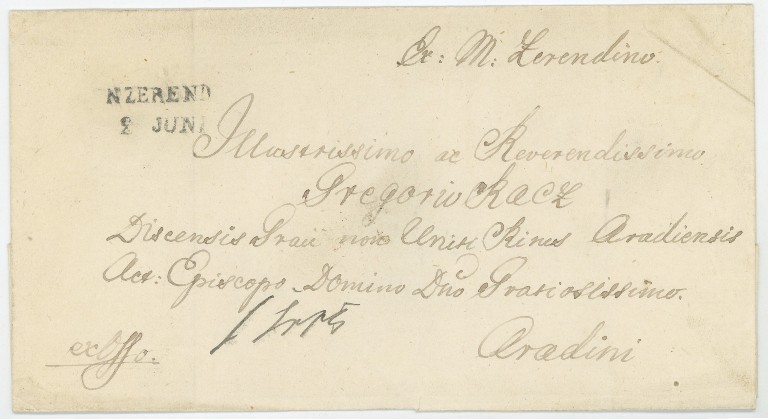 Ex: M: Zerendino.
NZEREND
2 JUNI
Illustrissimo ac Reverendissimo
Gregorio Racz
Discensis Graeci non Uniti Ritus Aradiensis
Act: Episcopo Domino Dno Gratiosissimo.
exOffo.
Aradini